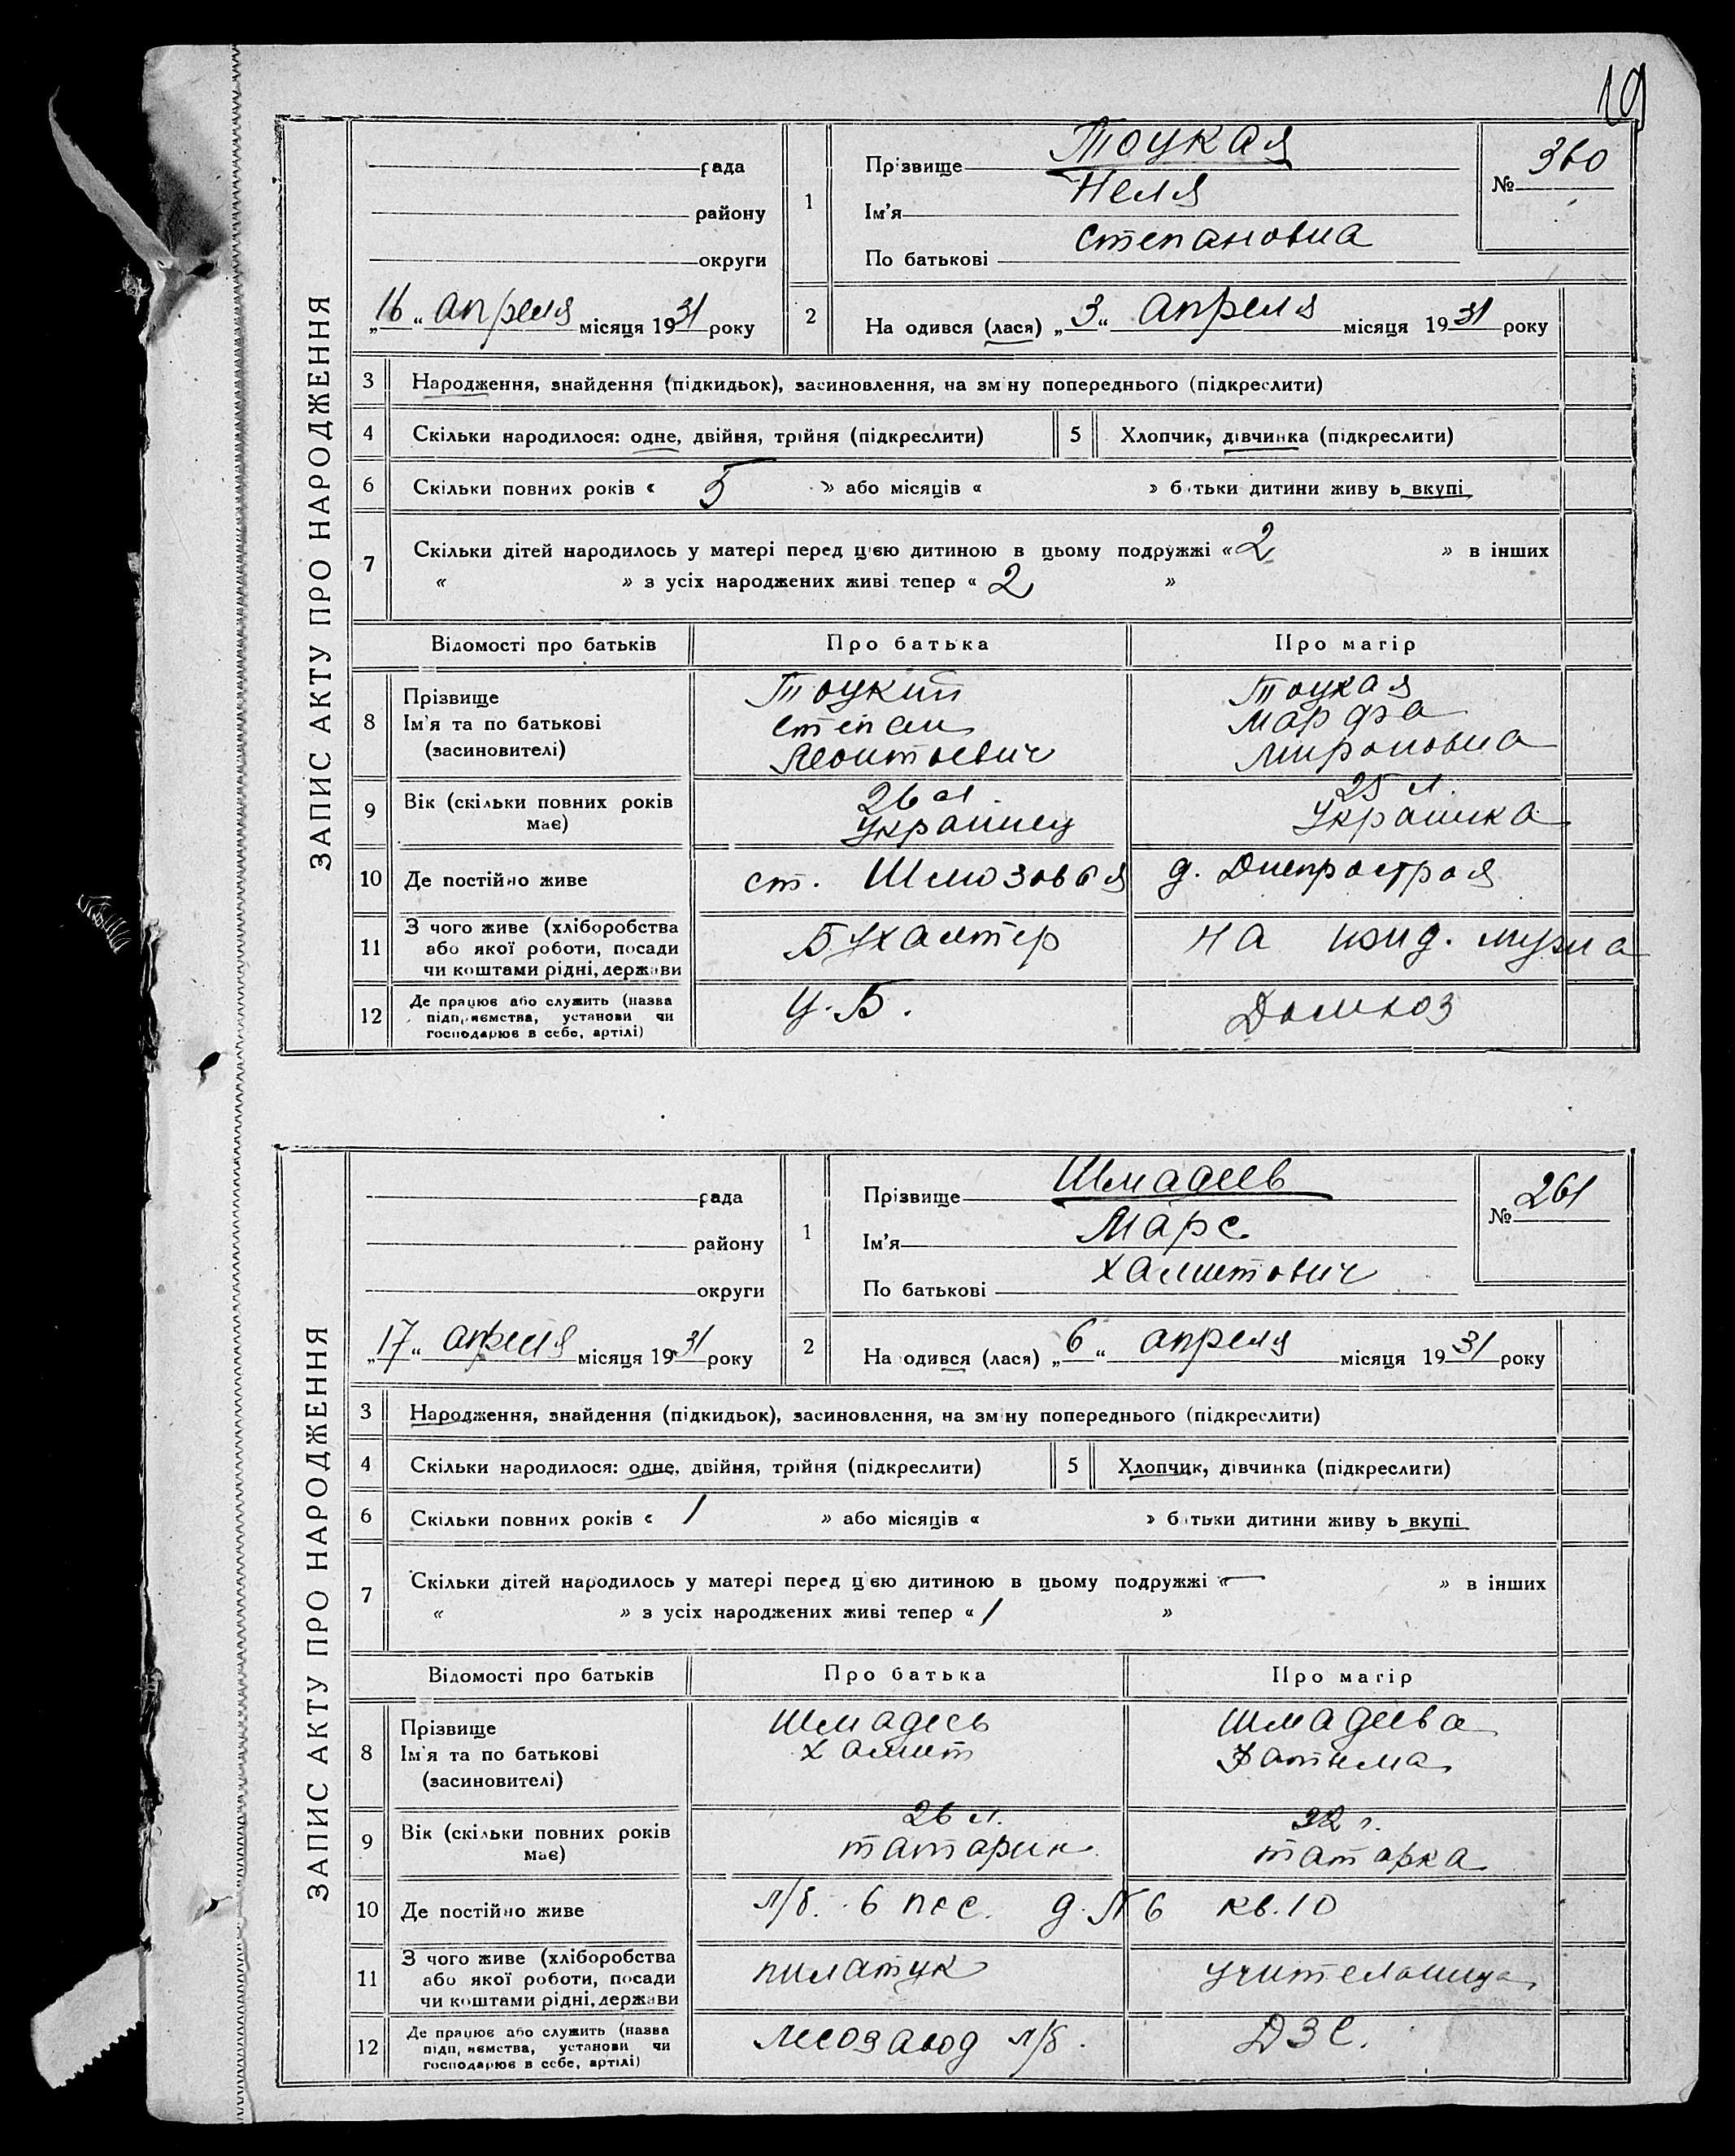 19
ЗАПИС АКТУ ПРО НАРОДЖЕННЯ
рада
району
округи
„16“ апреля місяця 1931 року
1
Прізвище Тоцкая
Ім'я Неля
По батькові Степановна
№ 360
2
На одився (лася) „3“ апреля місяця 1931 року
3 Народження, знайдення (підкидьок), засиновлення, на зм ну попереднього (підкреслити)
4 Скільки народилося: одне, двійня, трійня (підкреслити)
5 Хлопчик, дівчинка (підкреслити)
6 Скільки повних років « 5 » або місяців « » б тьки дитини живу ь вкупі
7 Скільки дітей народилось у матері перед цією дитиною в цьому подружжі « 2 » в інших
« » з усіх народжених живі тепер « 2 »
Відомості про батьків Про батька Про матір
8 Прізвище
Ім'я та по батькові
(засиновителі)
Тоцкий
Степан
Леонтьевич
Тоцкая
Марфа
Мироновна
9 Вік (скільки повних років
має)
26 л.
Украинец
25 л.
Украинка
10 Де постійно живе
ст. Шлюзовая д. Днепростроя
11 З чого живе (хліборобства
або якої роботи, посади
чи коштами рідні, держави
Бухалтер
на ижд. мужа
12 Де працює або служить (назва
підприємства, установи чи
господарює в себе, артілі)
Ц.Б.
ЗАПИС АКТУ ПРО НАРОДЖЕННЯ
рада
району
округи
„17“ апреля місяця 1931 року
1
Прізвище Шмадеев
Ім'я Марс
По батькові Халитович
№ 261
2
На одився (лася) „6“ апреля місяця 1931 року
3 Народження, знайдення (підкидьок), засиновлення, на зм ну попереднього (підкреслити)
4 Скільки народилося: одне, двійня, трійня (підкреслити)
5 Хлопчик, дівчинка (підкреслити)
6 Скільки повних років « 1 » або місяців « » б тьки дитини живу ь вкупі
7 Скільки дітей народилось у матері перед цією дитиною в цьому подружжі « — » в інших
« » з усіх народжених живі тепер « 1 »
Відомості про батьків Про батька Про матір
8 Прізвище
Ім'я та по батькові
(засиновителі)
Шмадеев
Халит
Шмадеева
Фатыма
9 Вік (скільки повних років
має)
26 л.
татарин
22 г.
татарка
10 Де постійно живе
л/б. 6 пос. д. № 6 кв. 10
11 З чого живе (хліборобства
або якої роботи, посади
чи коштами рідні, держави
учительница
12 Де працює або служить (назва
підприємства, установи чи
господарює в себе, артілі)
лесозавод л/б.
ДЗС.